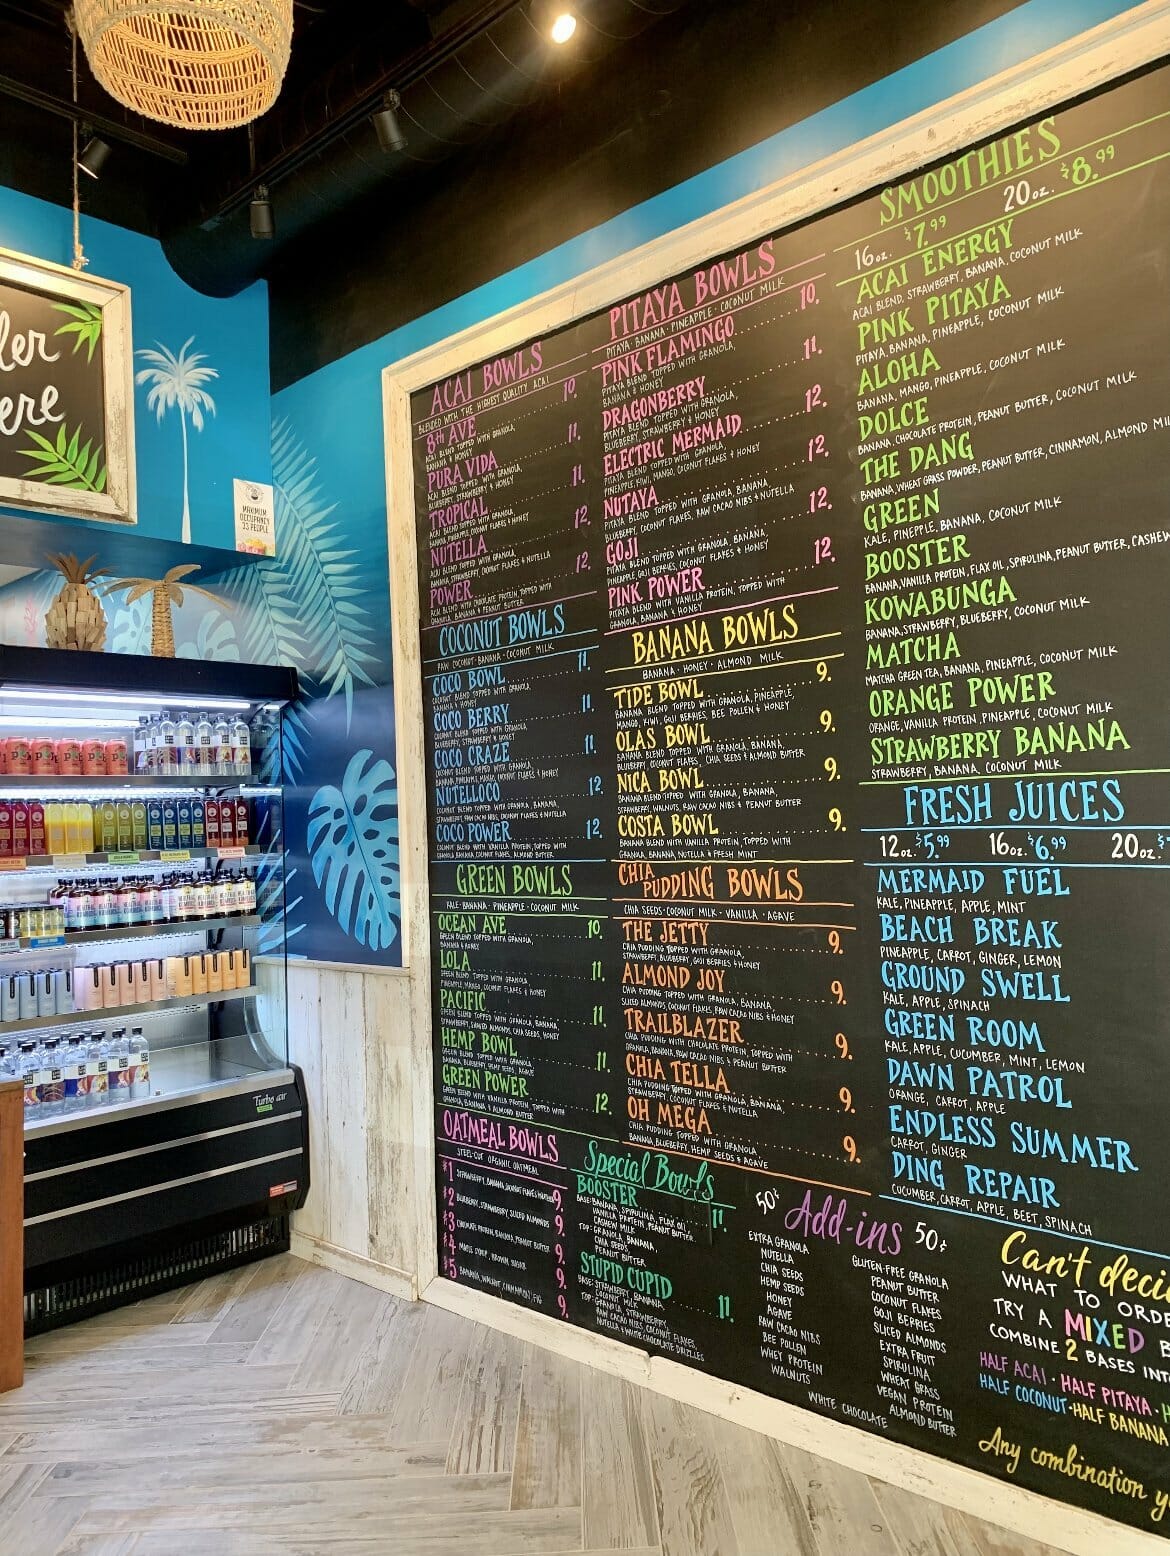 ler
ere
MAXIMUM
OCCUPANCY
33 PEOPLE
Turbo air
ACAI BOWLS
BLENDED WITH THE HIGHEST QUALITY ACAI
8th AVE 10.
ACAI BLEND TOPPED WITH GRANOLA,
BANANA & HONEY
PURA VIDA 11.
ACAI BLEND TOPPED WITH GRANOLA,
BLUEBERRY, STRAWBERRY & HONEY
TROPICAL 11.
ACAI BLEND TOPPED WITH GRANOLA,
BANANA, PINEAPPLE, COCONUT FLAKES & HONEY
NUTELLA 12.
ACAI BLEND TOPPED WITH GRANOLA,
BANANA, STRAWBERRY, COCONUT FLAKES & NUTELLA
POWER 12.
ACAI BLEND WITH CHOCOLATE PROTEIN, TOPPED WITH
GRANOLA, BANANA & PEANUT BUTTER
COCONUT BOWLS
RAW COCONUT · BANANA · COCONUT MILK
COCO BOWL 11.
COCONUT BLEND TOPPED WITH GRANOLA,
BANANA & HONEY
COCO BERRY 11.
COCONUT BLEND TOPPED WITH GRANOLA,
BLUEBERRY, STRAWBERRY & HONEY
COCO CRAZE 11.
COCONUT BLEND TOPPED WITH GRANOLA,
BANANA, PINEAPPLE, MANGO, COCONUT FLAKES & HONEY
NUTELLOCO 12.
COCONUT BLEND TOPPED WITH GRANOLA, BANANA,
STRAWBERRY, RAW CACAO NIBS, COCONUT FLAKES & NUTELLA
COCO POWER 12.
COCONUT BLEND WITH VANILLA PROTEIN, TOPPED WITH
GRANOLA, BANANA, COCONUT FLAKES, ALMOND BUTTER
GREEN BOWLS
KALE · BANANA · PINEAPPLE · COCONUT MILK
OCEAN AVE 10.
GREEN BLEND TOPPED WITH GRANOLA,
BANANA & HONEY
LOLA 11.
GREEN BLEND TOPPED WITH GRANOLA,
PINEAPPLE, MANGO, COCONUT FLAKES & HONEY
PACIFIC 11.
GREEN BLEND TOPPED WITH GRANOLA, BANANA,
STRAWBERRY, SLICED ALMONDS, CHIA SEEDS, HONEY
HEMP BOWL 11.
GREEN BLEND TOPPED WITH GRANOLA,
BANANA, BLUEBERRY, HEMP SEEDS, AGAVE
GREEN POWER 12.
GREEN BLEND WITH VANILLA PROTEIN, TOPPED WITH
GRANOLA, BANANA & ALMOND BUTTER
OATMEAL BOWLS
STEEL-CUT ORGANIC OATMEAL
#1 STRAWBERRY, BANANA, COCONUT FLAKES 9.
#2 BLUEBERRY, STRAWBERRY, SLICED ALMONDS 9.
#3 CHOCOLATE PROTEIN, BANANA, PEANUT BUTTER 9.
#4 MAPLE SYRUP, BROWN SUGAR 9.
#5 BANANA, WALNUT, CINNAMON, FIG 9.
PITAYA BOWLS
PITAYA · BANANA · PINEAPPLE · COCONUT MILK
PINK FLAMINGO 10.
PITAYA BLEND TOPPED WITH GRANOLA,
BANANA & HONEY
DRAGONBERRY 11.
PITAYA BLEND TOPPED WITH GRANOLA,
BLUEBERRY, STRAWBERRY & HONEY
ELECTRIC MERMAID 12.
PITAYA BLEND TOPPED WITH GRANOLA,
PINEAPPLE, KIWI, MANGO, COCONUT FLAKES & HONEY
NUTAYA 12.
PITAYA BLEND TOPPED WITH GRANOLA, BANANA,
BLUEBERRY, COCONUT FLAKES, RAW CACAO NIBS & NUTELLA
GOJI 12.
PITAYA BLEND TOPPED WITH GRANOLA, BANANA,
PINEAPPLE, GOJI BERRIES, COCONUT FLAKES & HONEY
PINK POWER 12.
PITAYA BLEND WITH VANILLA PROTEIN, TOPPED WITH
GRANOLA, BANANA & HONEY
BANANA BOWLS
BANANA · HONEY · ALMOND MILK
TIDE BOWL 9.
BANANA BLEND TOPPED WITH GRANOLA, PINEAPPLE,
MANGO, KIWI, GOJI BERRIES, BEE POLLEN & HONEY
OLAS BOWL 9.
BANANA BLEND TOPPED WITH GRANOLA, BANANA,
BLUEBERRY, COCONUT FLAKES, CHIA SEEDS & ALMOND BUTTER
NICA BOWL 9.
BANANA BLEND TOPPED WITH GRANOLA, BANANA,
STRAWBERRY, WALNUTS, RAW CACAO NIBS & PEANUT BUTTER
COSTA BOWL 9.
BANANA BLEND WITH VANILLA PROTEIN, TOPPED WITH
GRANOLA, BANANA, NUTELLA & FRESH MINT
CHIA
PUDDING BOWLS
CHIA SEEDS · COCONUT MILK · VANILLA · AGAVE
THE JETTY 9.
CHIA PUDDING TOPPED WITH GRANOLA,
STRAWBERRY, BLUEBERRY, GOJI BERRIES & HONEY
ALMOND JOY 9.
CHIA PUDDING TOPPED WITH GRANOLA, BANANA,
SLICED ALMONDS, COCONUT FLAKES, RAW CACAO NIBS & HONEY
TRAILBLAZER 9.
CHIA PUDDING WITH CHOCOLATE PROTEIN, TOPPED WITH
GRANOLA, BANANA, RAW CACAO NIBS & PEANUT BUTTER
CHIA TELLA 9.
CHIA PUDDING TOPPED WITH GRANOLA, BANANA,
STRAWBERRY, COCONUT FLAKES & NUTELLA
OH MEGA 9.
CHIA PUDDING TOPPED WITH GRANOLA,
BANANA, BLUEBERRY, HEMP SEEDS & AGAVE
Special Bowls
BOOSTER 11.
BASE: BANANA, SPIRULINA, FLAX OIL,
VANILLA PROTEIN, PEANUT BUTTER,
CASHEW MILK
TOP: GRANOLA, BANANA,
CHIA SEEDS,
PEANUT BUTTER
STUPID CUPID 11.
BASE: STRAWBERRY, BANANA,
COCONUT MILK
TOP: GRANOLA, STRAWBERRY,
RAW CACAO NIBS, COCONUT FLAKES,
NUTELLA & WHITE CHOCOLATE DRIZZLES
50¢ Add-ins 50¢
EXTRA GRANOLA
NUTELLA
CHIA SEEDS
HEMP SEEDS
HONEY
AGAVE
RAW CACAO NIBS
BEE POLLEN
WHEY PROTEIN
WALNUTS
WHITE CHOCOLATE
GLUTEN-FREE GRANOLA
PEANUT BUTTER
COCONUT FLAKES
GOJI BERRIES
SLICED ALMONDS
EXTRA FRUIT
SPIRULINA
WHEAT GRASS
VEGAN PROTEIN
ALMOND BUTTER
SMOOTHIES
16 oz. $7.99 20 oz. $8.99
ACAI ENERGY
ACAI BLEND, STRAWBERRY, BANANA, COCONUT MILK
PINK PITAYA
PITAYA, BANANA, PINEAPPLE, COCONUT MILK
ALOHA
BANANA, MANGO, PINEAPPLE, COCONUT MILK
DOLCE
BANANA, CHOCOLATE PROTEIN, PEANUT BUTTER, COCONUT MILK
THE DANG
BANANA, WHEAT GRASS POWDER, PEANUT BUTTER, CINNAMON, ALMOND MIL
GREEN
KALE, PINEPPLE, BANANA, COCONUT MILK
BOOSTER
BANANA, VANILLA PROTEIN, FLAX OIL, SPIRULINA, PEANUT BUTTER, CASHEW
KOWABUNGA
BANANA, STRAWBERRY, BLUEBERRY, COCONUT MILK
MATCHA
MATCHA GREEN TEA, BANANA, PINEAPPLE, COCONUT MILK
ORANGE POWER
ORANGE, VANILLA PROTEIN, PINEAPPLE, COCONUT MILK
STRAWBERRY BANANA
STRAWBERRY, BANANA, COCONUT MILK
FRESH JUICES
12 oz. $5.99 16 oz. $6.99 20 oz. $
MERMAID FUEL
KALE, PINEAPPLE, APPLE, MINT
BEACH BREAK
PINEAPPLE, CARROT, GINGER, LEMON
GROUND SWELL
KALE, APPLE, SPINACH
GREEN ROOM
KALE, APPLE, CUCUMBER, MINT, LEMON
DAWN PATROL
ORANGE, CARROT, APPLE
ENDLESS SUMMER
CARROT, GINGER
DING REPAIR
CUCUMBER, CARROT, APPLE, BEET, SPINACH
Can't deci
WHAT TO ORDE
TRY A MIXED B
COMBINE 2 BASES INT
HALF ACAI · HALF PITAYA · H
HALF COCONUT · HALF BANANA
Any combination y